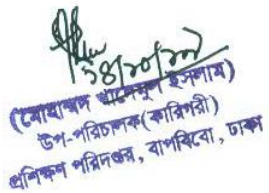 ২৪/১০/১৭
(মোহাম্মদ খাদেমুল ইসলাম)
উপ-পরিচালক(কারিগরী)
প্রশিক্ষণ পরিদপ্তর, বাপবিবো, ঢাকা